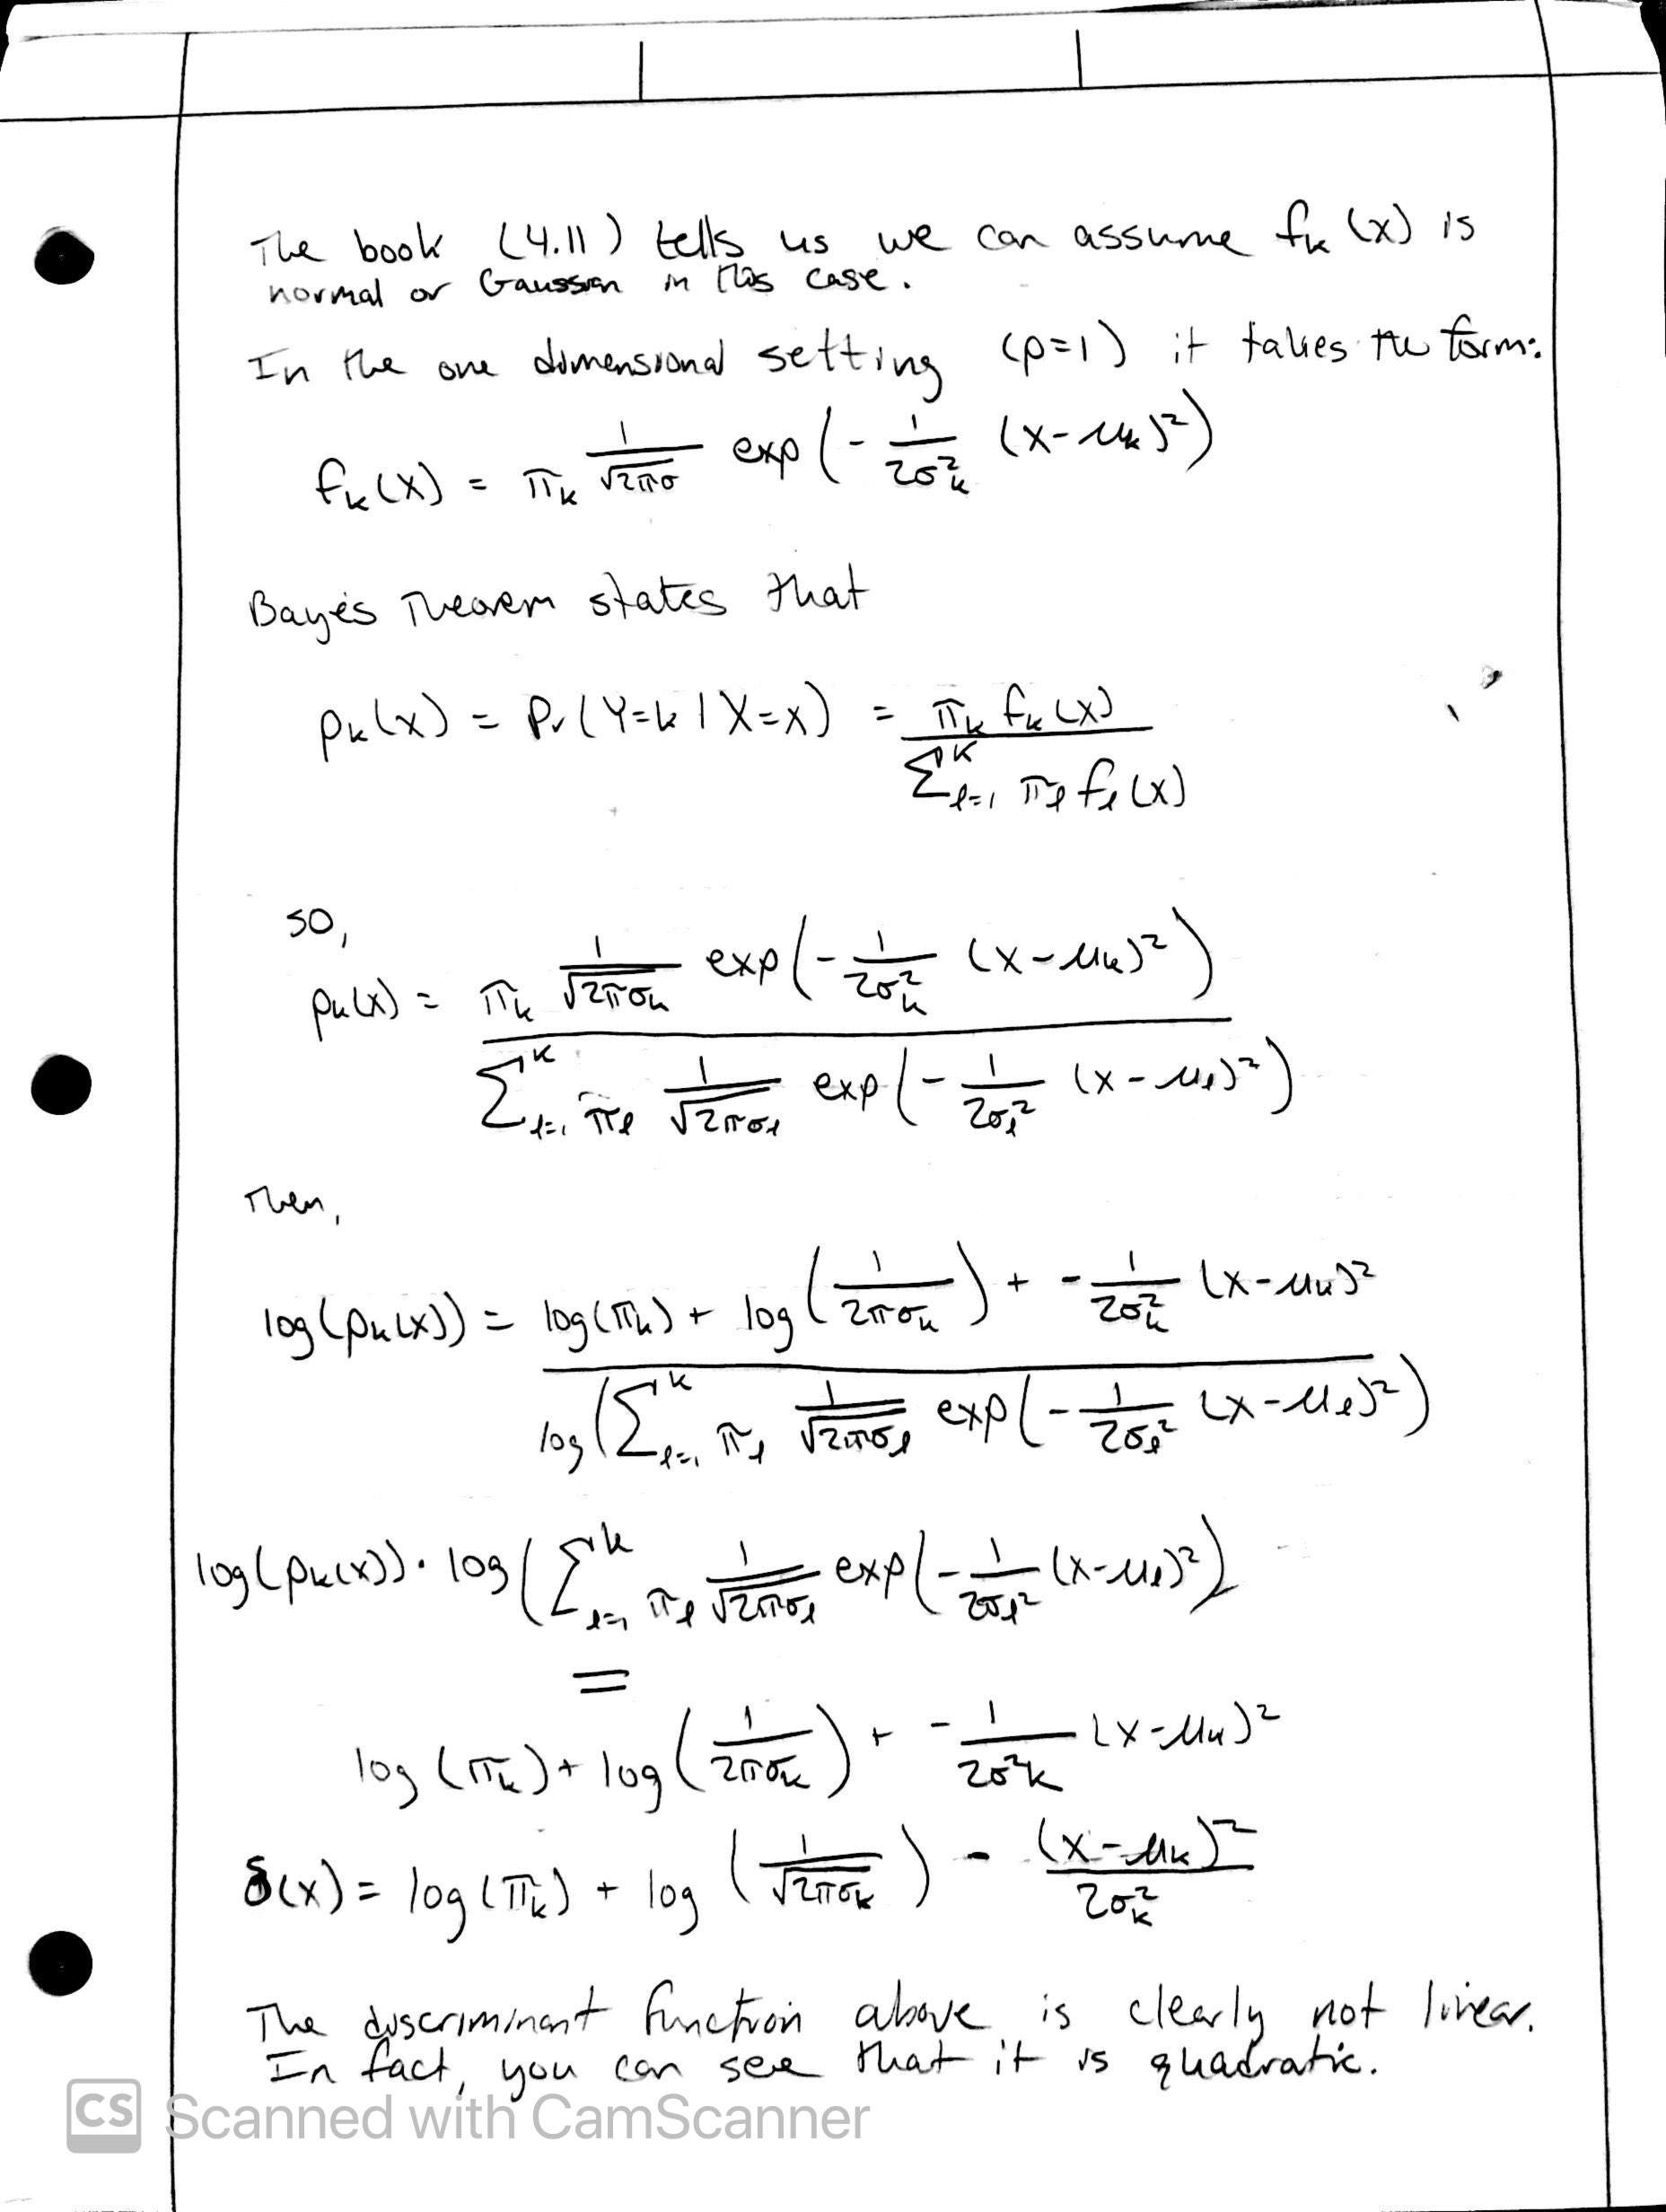 The book (4.11) tells us we can assume fₖ(x) is
normal or Gaussian in this case.
In the one dimensional setting (p=1) it takes the form:
fₖ(x) = πₖ 1/√2πσ exp(- 1/2σ²ₖ (x-μₖ)²)
Baye's Theorem states that
pₖ(x) = Pr(Y=k | X=x) = πₖ fₖ(x) / Σᴷₗ₌₁ πₗ fₗ(x)
so,
pₖ(x) = πₖ 1/√2πσₖ exp(- 1/2σ²ₖ (x-μₖ)²) / Σᴷₗ₌₁ πₗ 1/√2πσₗ exp(- 1/2σₗ² (x-μₗ)²)
Then,
log(pₖ(x)) = log(πₖ) + log(1/2πσₖ) + - 1/2σ²ₖ (x-μₖ)² / log(Σᴷₗ₌₁ πₗ 1/√2πσₗ exp(- 1/2σₗ² (x-μₗ)²)
log(pₖ(x)) · log(Σᴷₗ₌₁ πₗ 1/√2πσₗ exp(- 1/2σₗ² (x-μₗ)²)
=
log(πₖ) + log(1/2πσₖ) + - 1/2σ²k (x-μₖ)²
δ(x) = log(πₖ) + log(1/√2πσₖ) - (x-μₖ)²/2σ²ₖ
The discriminant function above is clearly not linear.
In fact, you can see that it is quadratic.
CS Scanned with CamScanner